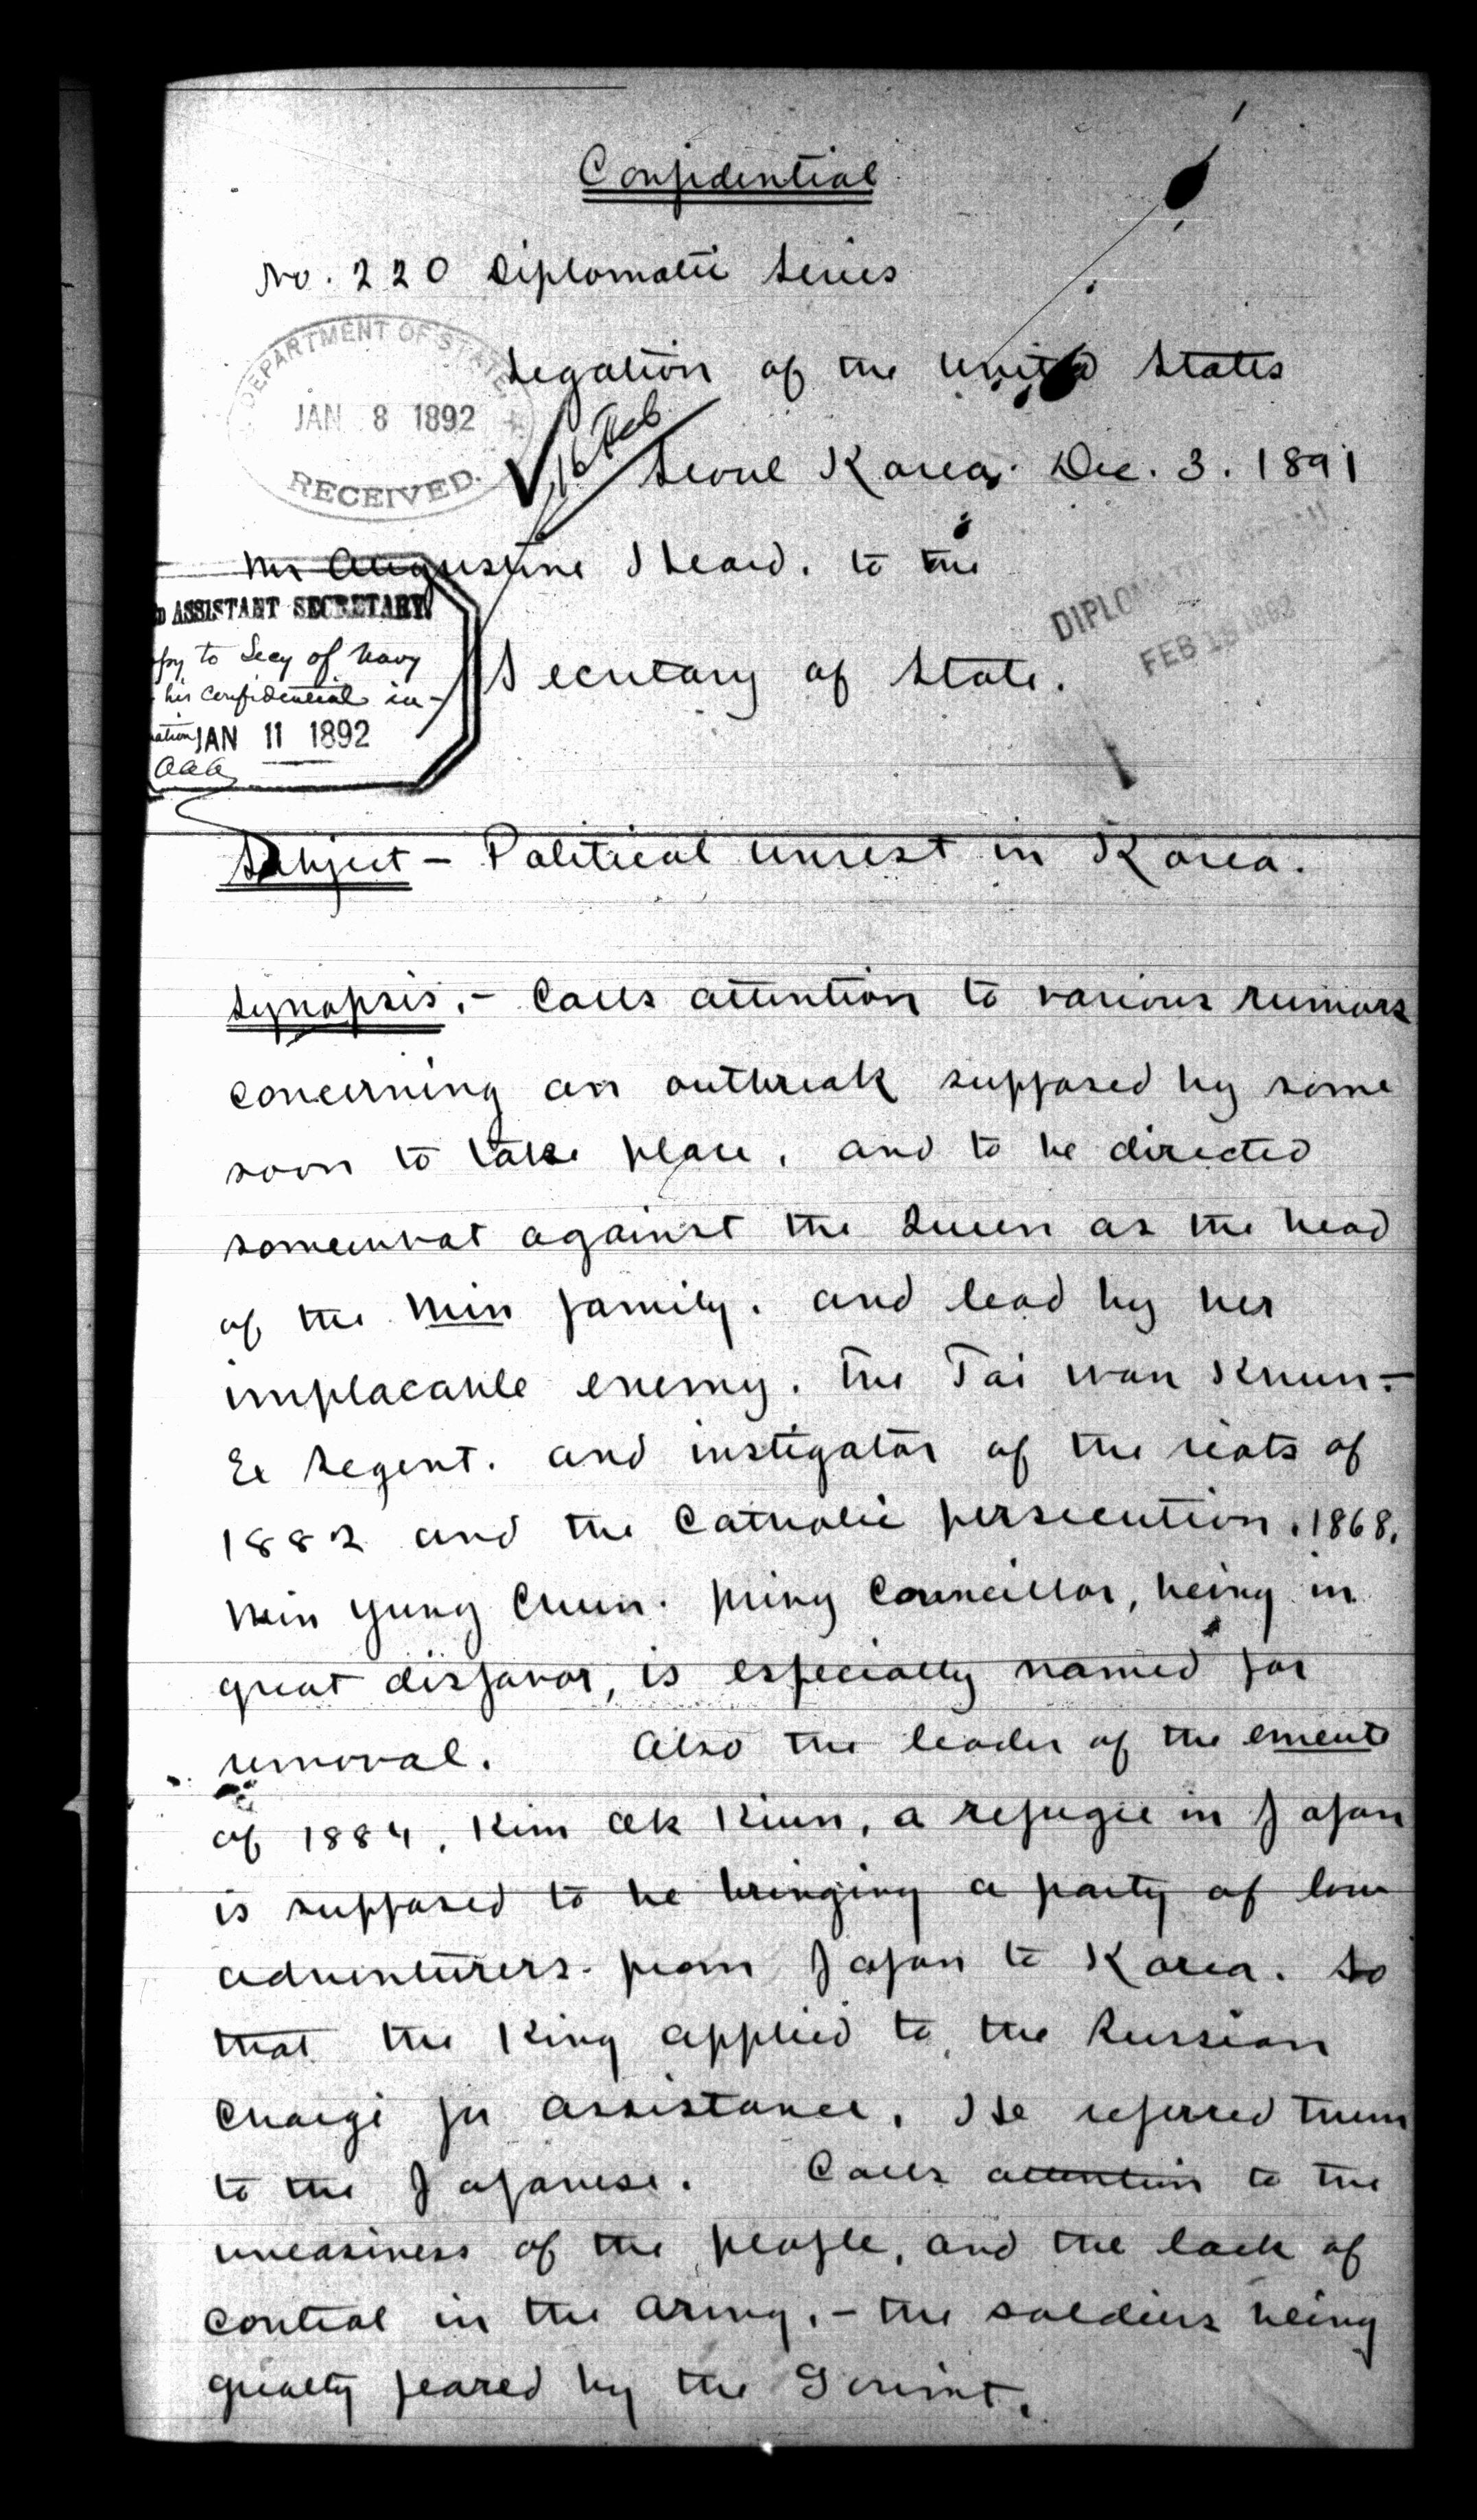 Confidential
No. 220 Diplomatic Series
DEPARTMENT OF STATE
JAN 8 1892
RECEIVED.
Legation of the United States
16 Feb
Seoul Korea. Dec. 3. 1891
Mr Augustine Heard. to the
Secretary of State.
ASSISTANT SECRETARY.
to Secy of Navy
his confidential in-
JAN 11 1892
DIPLOMATIC
FEB 1892
Subject - Political unrest in Korea.
Synopsis. - Calls attention to various rumors
concerning an outbreak supposed by some
soon to take place, and to be directed
somewhat against the Queen as the head
of the Min family. and lead by her
implacable enemy. the Tai wan Khun. -
Ex Regent. and instigator of the riots of
1882 and the Catholic persecution. 1868.
Min Yung Chun. Priny Councillor, being in
great disfavor, is especially named for
removal. Also the leader of the emeute
of 1884, Kim Ok Kiun, a refugee in Japan
is supposed to be bringing a party of low
adventurers from Japan to Korea. So
that the King applied to the Russian
Chargé for assistance. He referred them
to the Japanese. Calls attention to the
uneasiness of the people, and the lack of
control in the army. - the soldiers being
greatly feared by the Govmnt.